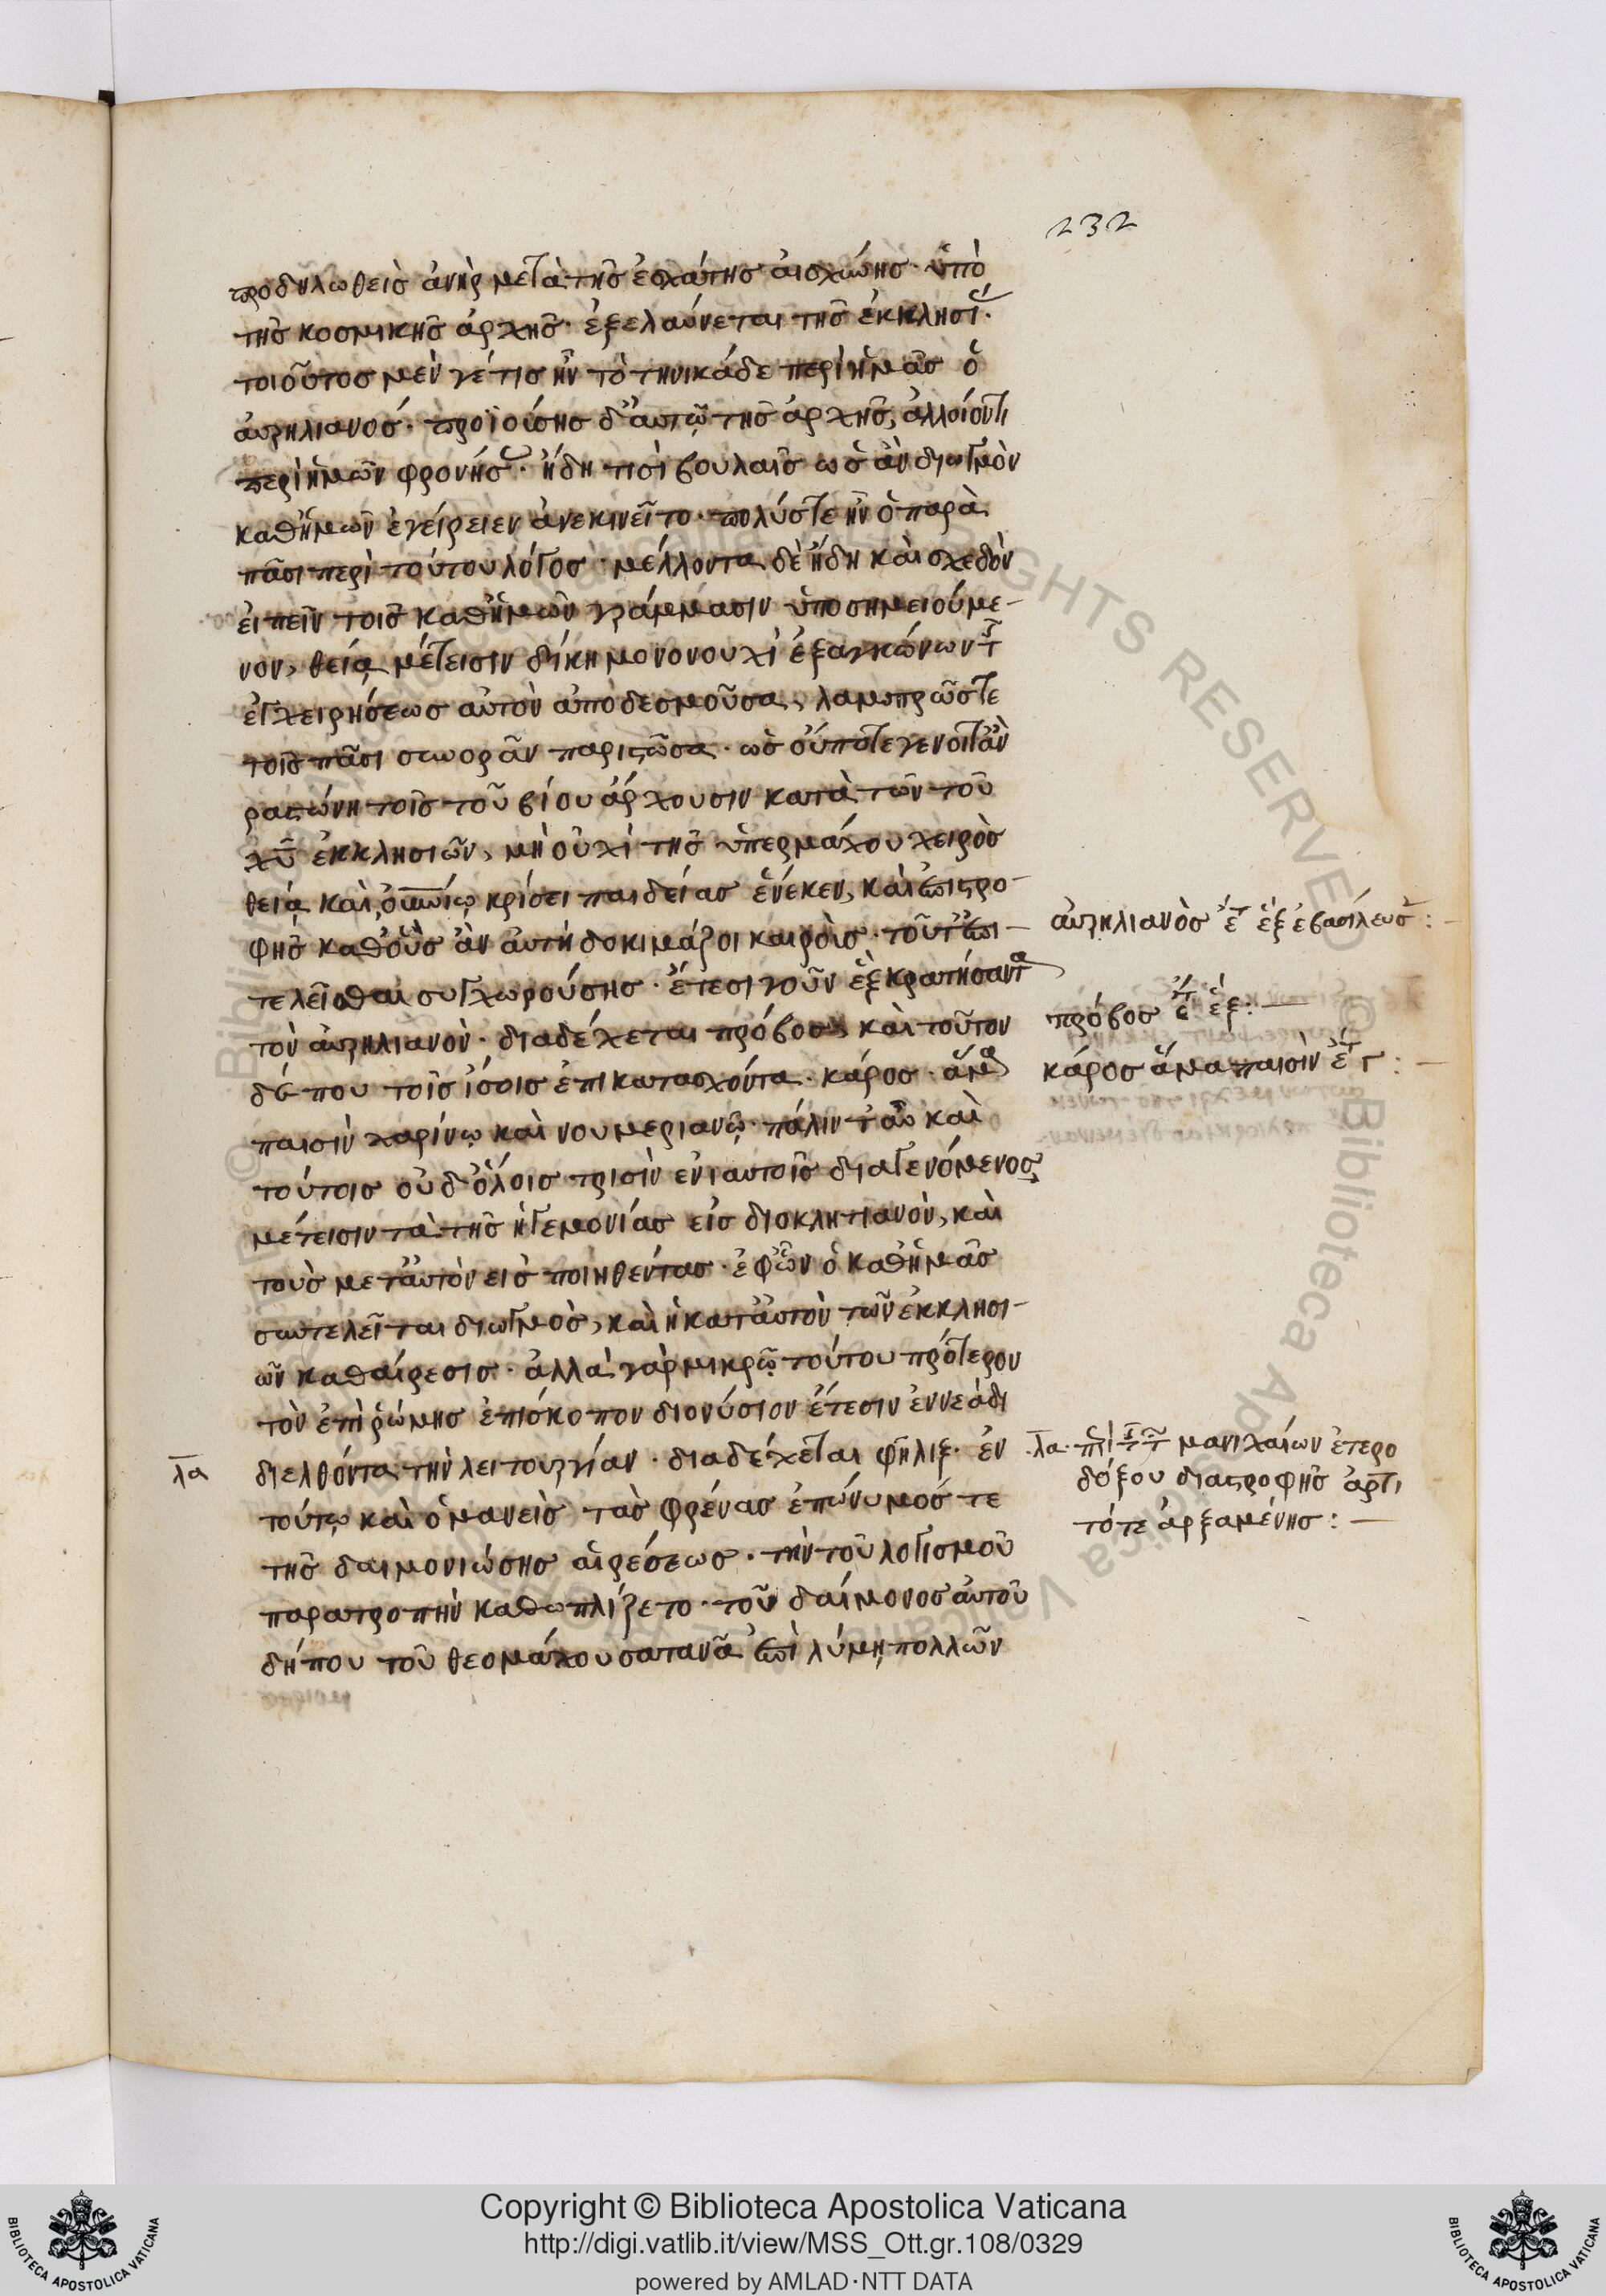 232
προδηλωθεὶς ἀνὴρ μετὰ τῆς ἐσχάτης αἰσχύνης· ὑπὸ
τῆς κοσμικῆς ἀρχῆς· ἐξελαύνεται τῆς ἐκκλησί·
τοιοῦτος μέν γέ τις ἦν τὸ τηνικάδε περὶ ἡμᾶς ὁ
αὐρηλιανός· προϊούσης δ' αὐτῷ τῆς ἀρχῆς, ἀλλοῖόν τι
περὶ ἡμῶν φρονήσ· ἤδη τισὶ βουλαῖς ὡς ἂν διωγμὸν
καθ' ἡμῶν ἐγείρειεν ἀνεκινεῖτο· πολύς τε ἦν ὁ παρὰ
πᾶσι περὶ τούτου λόγος· μέλλοντα δὲ ἤδη καὶ σχεδὸν
εἰπεῖν τοῖς καθ' ἡμῶν γράμμασιν ὑποσημειούμε-
νον, θεία μέτεισιν δίκη μονονουχὶ ἐξ ἀγκώνων τ
ἐγχειρήσεως αὐτὸν ἀποδεσμοῦσα, λαμπρῶς τε
τοῖς πᾶσι συνορᾶν παριστῶσα· ὡς οὔποτε γένοιτ' ἂν
ραστώνη τοῖς τοῦ βίου ἄρχουσιν κατὰ τῶν τοῦ
χῦ ἐκκλησιῶν, μὴ οὐχὶ τῆς ὑπερμάχου χειρὸς
θεία καὶ οὐνίῳ κρίσει παιδείας ἕνεκεν, καὶ ἐπιστρο-
φῆς καθ' οὓς ἂν αὐτὴ δοκιμάζοι καιροὺς· τοῦτ' ἐπι-
τελεῖσθαι συγχωρούσης· ἔτεσι γοῦν ἓξ κρατήσαντα
τὸν αὐρηλιανὸν· διαδέχεται πρόβος, καὶ τοῦτον
δέ που τοῖς ἴσοις ἐπικατασχόντα· κάρος· ἅμα
παισὶν καρίνῳ καὶ νουμεριανῷ· πάλιν τ' αὖ καὶ
τούτοις οὐδ' ὅλοις τρισὶν ἐνιαυτοῖς διαγενόμενος
μέτεισιν τὰ τῆς ἡγεμονίας εἰς διοκλητιανὸν, καὶ
τοὺς μετ' αὐτὸν εἰσποιηθέντας· ἐφ' ὧν ὁ καθ' ἡμᾶς
συντελεῖται διωγμὸς, καὶ ἡ κατ' αὐτὸν τῶν ἐκκλησι-
ῶν καθαίρεσις· ἀλλὰ γὰρ μικρῷ τούτου πρότερον
τὸν ἐπὶ ῥώμης ἐπίσκοπον διονύσιον ἔτεσιν ἐννέα δι
διελθόντα τὴν λειτουργίαν· διαδέχεται φῆλιξ· ἐν
τούτῳ καὶ ὁ μανεὶς τὰς φρένας ἐπώνυμός τε
τῆς δαιμονιώσης αἱρέσεως· τὴν τοῦ λογισμοῦ
παρατροπὴν καθωπλίζετο· τοῦ δαίμονος αὐτοῦ
δήπου τοῦ θεομάχου σατανᾶ ἐπὶ λύμῃ πολλῶν
αὐρηλιανὸς ἔτ ἓξ ἐβασίλευσ:
πρόβος ἔτ ἓξ:
κάρος ἅμα παισὶν ἔτ γ:
λα
λα· περὶ τ τ μανιχαίων ἑτερο
δόξου διαστροφῆς ἄρτι
τότε ἀρξαμένης:
© Biblioteca Apostolica Vaticana ALL RIGHTS RESERVED
Copyright © Biblioteca Apostolica Vaticana
http://digi.vatlib.it/view/MSS_Ott.gr.108/0329
powered by AMLAD·NTT DATA
BIBLIOTECA APOSTOLICA VATICANA
BIBLIOTECA APOSTOLICA VATICANA